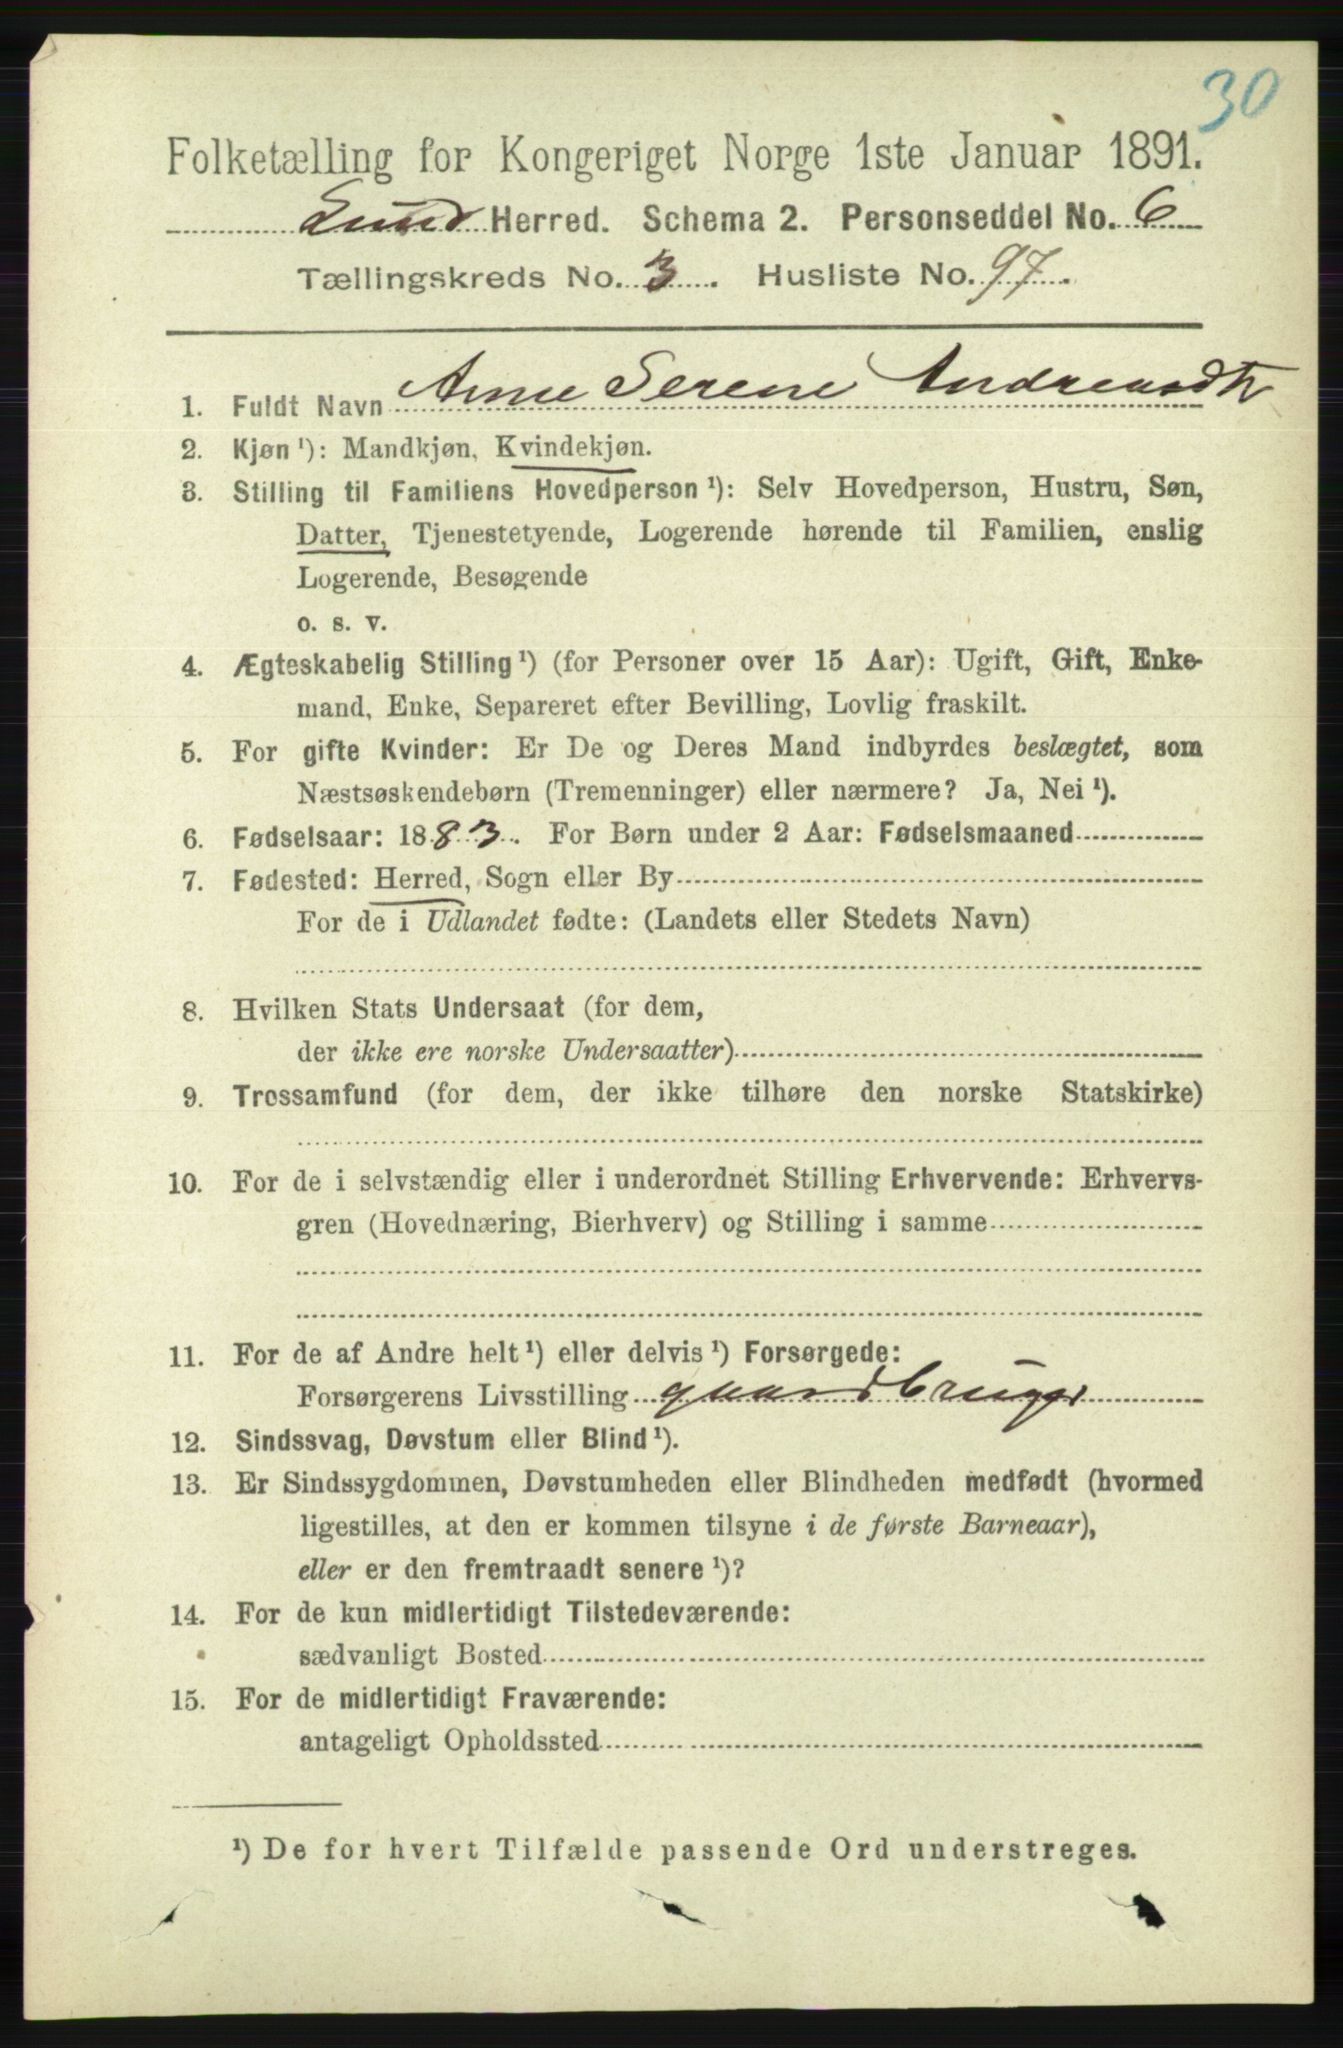 30
Folketælling for Kongeriget Norge 1ste Januar 1891.
Lund Herred. Schema 2. Personseddel No. 6
Tællingskreds No. 3. Husliste No. 97.
1. Fuldt Navn Anne Serene Andreasdtr
2. Kjøn¹): Mandkjøn, Kvindekjøn.
3. Stilling til Familiens Hovedperson¹): Selv Hovedperson, Hustru, Søn,
Datter, Tjenestetyende, Logerende hørende til Familien, enslig
Logerende, Besøgende
o. s. v.
4. Ægteskabelig Stilling¹) (for Personer over 15 Aar): Ugift, Gift, Enke-
mand, Enke, Separeret efter Bevilling, Lovlig fraskilt.
5. For gifte Kvinder: Er De og Deres Mand indbyrdes beslægtet, som
Næstsøskendebørn (Tremenninger) eller nærmere? Ja, Nei¹).
6. Fødselsaar: 1883. For Børn under 2 Aar: Fødselsmaaned
7. Fødested: Herred, Sogn eller By
For de i Udlandet fødte: (Landets eller Stedets Navn)
8. Hvilken Stats Undersaat (for dem,
der ikke ere norske Undersaatter)
9. Trossamfund (for dem, der ikke tilhøre den norske Statskirke)
10. For de i selvstændig eller i underordnet Stilling Erhvervende: Erhvervs-
gren (Hovednæring, Bierhverv) og Stilling i samme
11. For de af Andre helt¹) eller delvis¹) Forsørgede:
Forsørgerens Livsstilling
12. Sindssvag, Døvstum eller Blind¹).
13. Er Sindssygdommen, Døvstumheden eller Blindheden medfødt (hvormed
ligestilles, at den er kommen tilsyne i de første Barneaar),
eller er den fremtraadt senere¹)?
14. For de kun midlertidigt Tilstedeværende:
sædvanligt Bosted
15. For de midlertidigt Fraværende:
antageligt Opholdssted
¹) De for hvert Tilfælde passende Ord understreges.